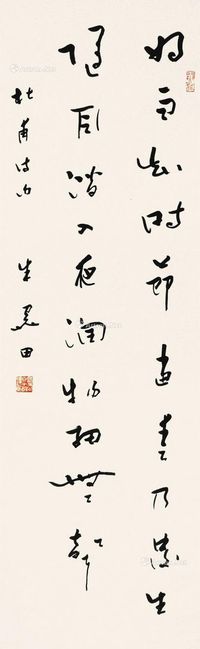 好雨知时节当春乃发生
随风潜入夜润物细无声
杜甫诗句 朱关田